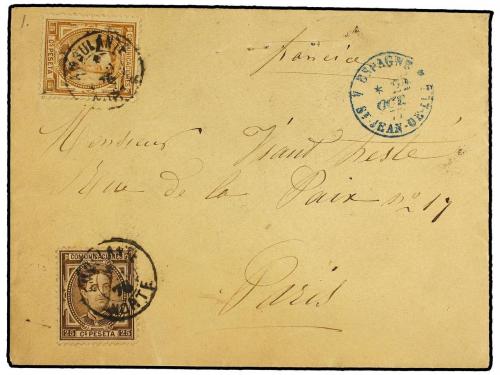 1.
AMBULANTE
Francia
ESPAGNE
* 22
OCT
ST JEAN-DE-LUZ
Monsieur Viant Preste
Rue de la Paix no. 17
COMUNICACIONES
AMBULANTE
NORTE
25 Cs PESETA 25
Paris